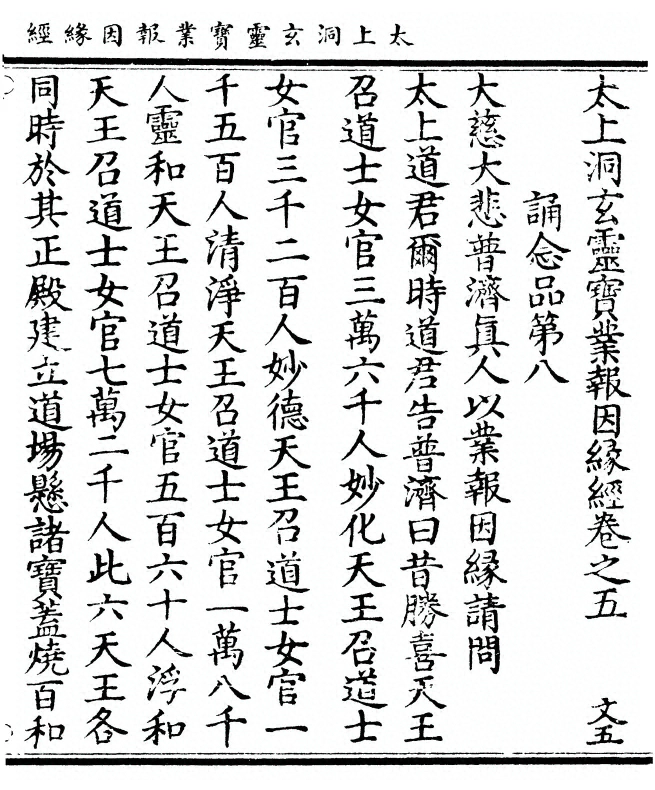 太上洞玄靈寶業報因緣經
太上洞玄靈寶業報因緣經卷之五 文五
誦念品第八
大慈大悲普濟真人以業報因緣請問
太上道君爾時道君告普濟曰昔勝喜天王
召道士女官三萬六千人妙化天王召道士
女官三千二百人妙德天王召道士女官一
千五百人清淨天王召道士女官一萬八千
人靈和天王召道士女官五百六十人浮和
天王召道士女官七萬二千人此六天王各
同時於其正殿建立道場懸諸寶蓋燒百和